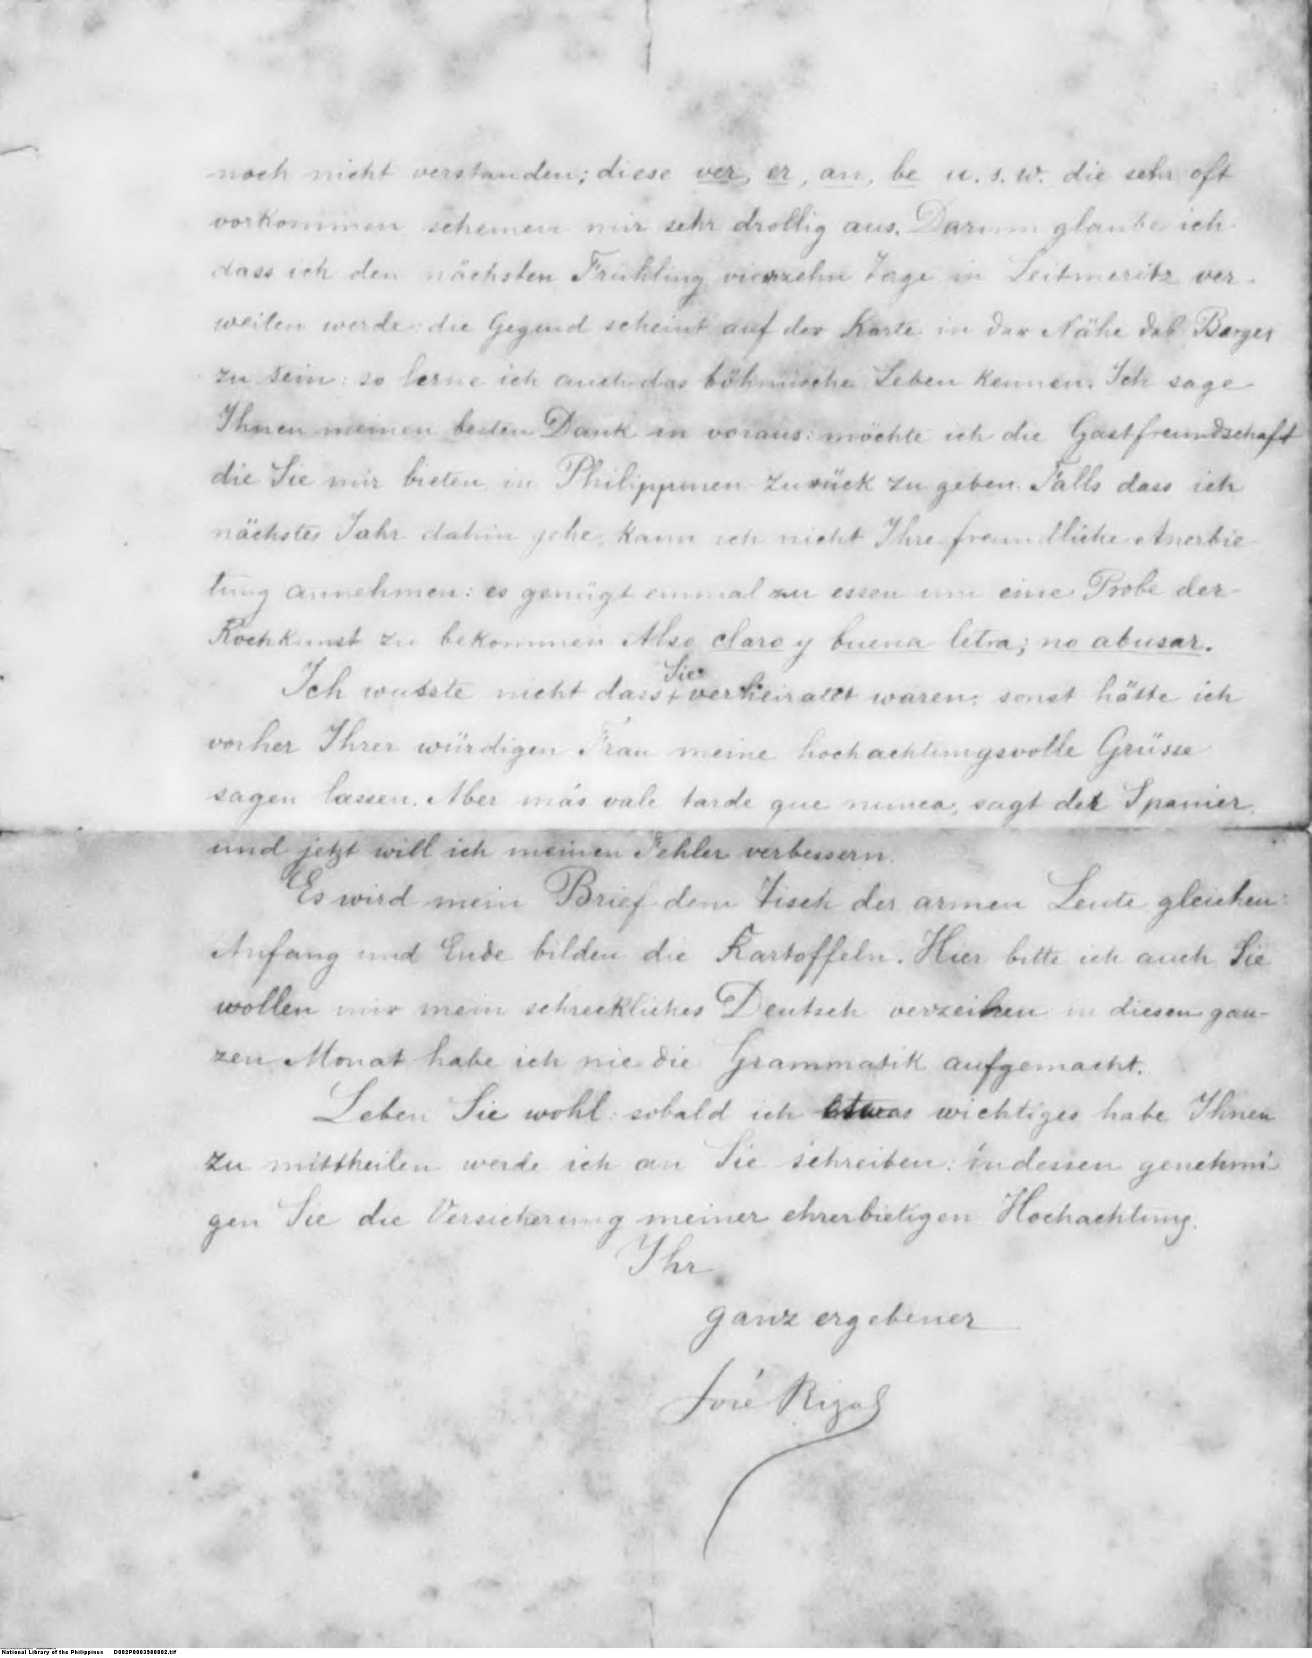 noch nicht verstanden; diese ver, er, an, be u. s. w. die sehr oft
vorkommen scheinen mir sehr drollig aus. Darum glaube ich
dass ich den nächsten Frühling vierzehn Tage in Leitmeritz ver-
weilen werde: die Gegend scheint auf der Karte in der Nähe des Berges
zu sein: so lerne ich auch das böhmische Leben kennen. Ich sage
Ihnen meinen besten Dank in voraus: möchte ich die Gastfreundschaft
die Sie mir bieten in Philippinen zurück zu geben. Falls dass ich
nächstes Jahr dahin gehe, kann ich nicht Ihre freundliche Anerbie
tung annehmen: es genügt einmal zu essen um eine Probe der
Kochkunst zu bekommen Also claro y buena letra; no abusar.
Sie
Ich wusste nicht dass + verheiratet waren: sonst hätte ich
vorher Ihrer würdigen Frau meine hochachtungsvolle Grüsse
sagen lassen. Aber más vale tarde que nunca, sagt der Spanier,
und jetzt will ich meinen Fehler verbessern.
Es wird mein Brief dem Tisch der armen Leute gleichen:
Anfang und Ende bilden die Kartoffeln. Hier bitte ich auch Sie
wollen mir mein schreckliches Deutsch verzeihen in diesen gan-
zen Monat habe ich nie die Grammatik aufgemacht.
Leben Sie wohl: sobald ich etwas wichtiges habe Ihnen
zu mittheilen werde ich an Sie schreiben: indessen genehmi
gen Sie die Versicherung meiner ehrerbietigen Hochachtung.
Ihr
ganz ergebener
José Rizal
National Library of the Philippines D002P0003900002.tif